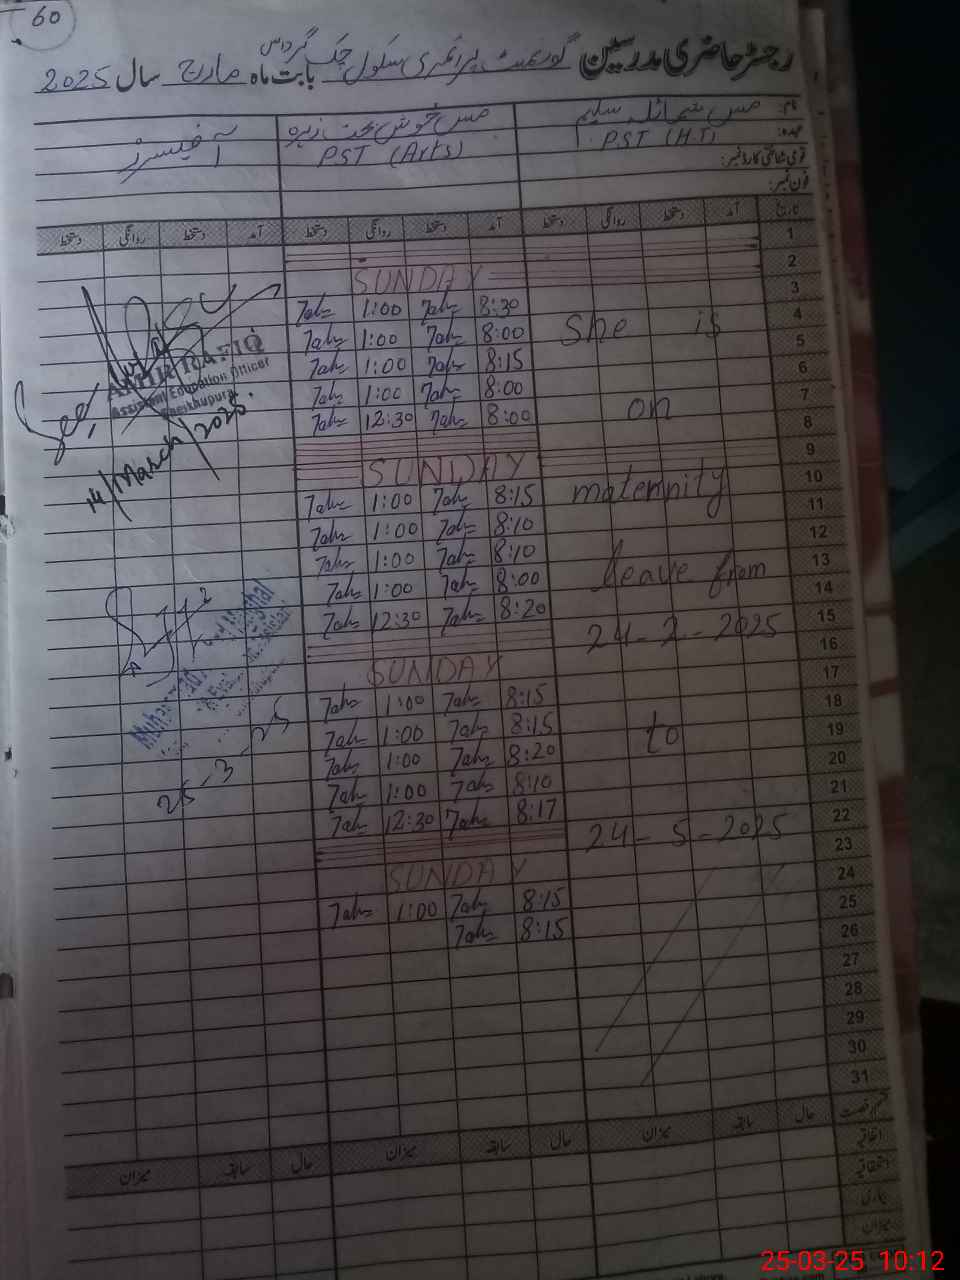 60
رجسٹر حاضری مدرسین گورنمنٹ پرائمری سکول چک گرداس بابت ماہ مارچ سال 2025
نام: مس شمائلہ سلیم مس خوش بخت زہرہ آفیسرز
عہدہ: PST (H.T) PST (Arts)
قومی شناختی کارڈ نمبر:
فون نمبر:
تاریخ آمد دستخط روانگی دستخط آمد دستخط روانگی دستخط آمد دستخط روانگی دستخط
1
2 SUNDAY
3 8:30 1:00
4 8:00 1:00 She is
5 8:15 1:00
6 8:00 1:00
7 8:00 12:30 on
8
9 SUNDAY
10 8:15 1:00 maternity
11 8:10 1:00
12 8:10 1:00
13 8:00 1:00 leave from
14 8:20 12:30
15 24-2-2025
16 SUNDAY
17 8:15 1:00
18 8:15 1:00
19 8:20 1:00 to
20 8:10 1:00
21 8:17 12:30
22 24-5-2025
23 SUNDAY
24 8:15 1:00
25 8:15
26
27
28
29
30
31
See
AMIR RAFIQ
Assistant Education Officer
Sheikhupura
14/March/2025.
25-3-25
قسم رخصت حال سابقہ میزان حال سابقہ میزان حال سابقہ میزان
اتفاقیہ
استحقاقیہ
بیماری
میزان
25-03-25 10:12